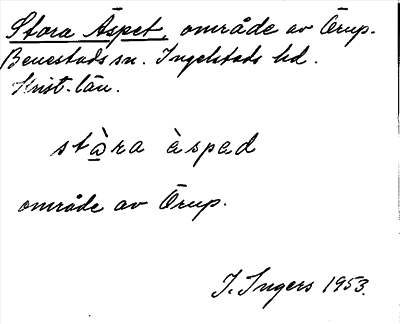 Stora Äspet, område av Örup.
Benestads sn. Ingelstads hd.
Krist. län.
stàra èsped
område av Örup.
I. Ingers 1953.